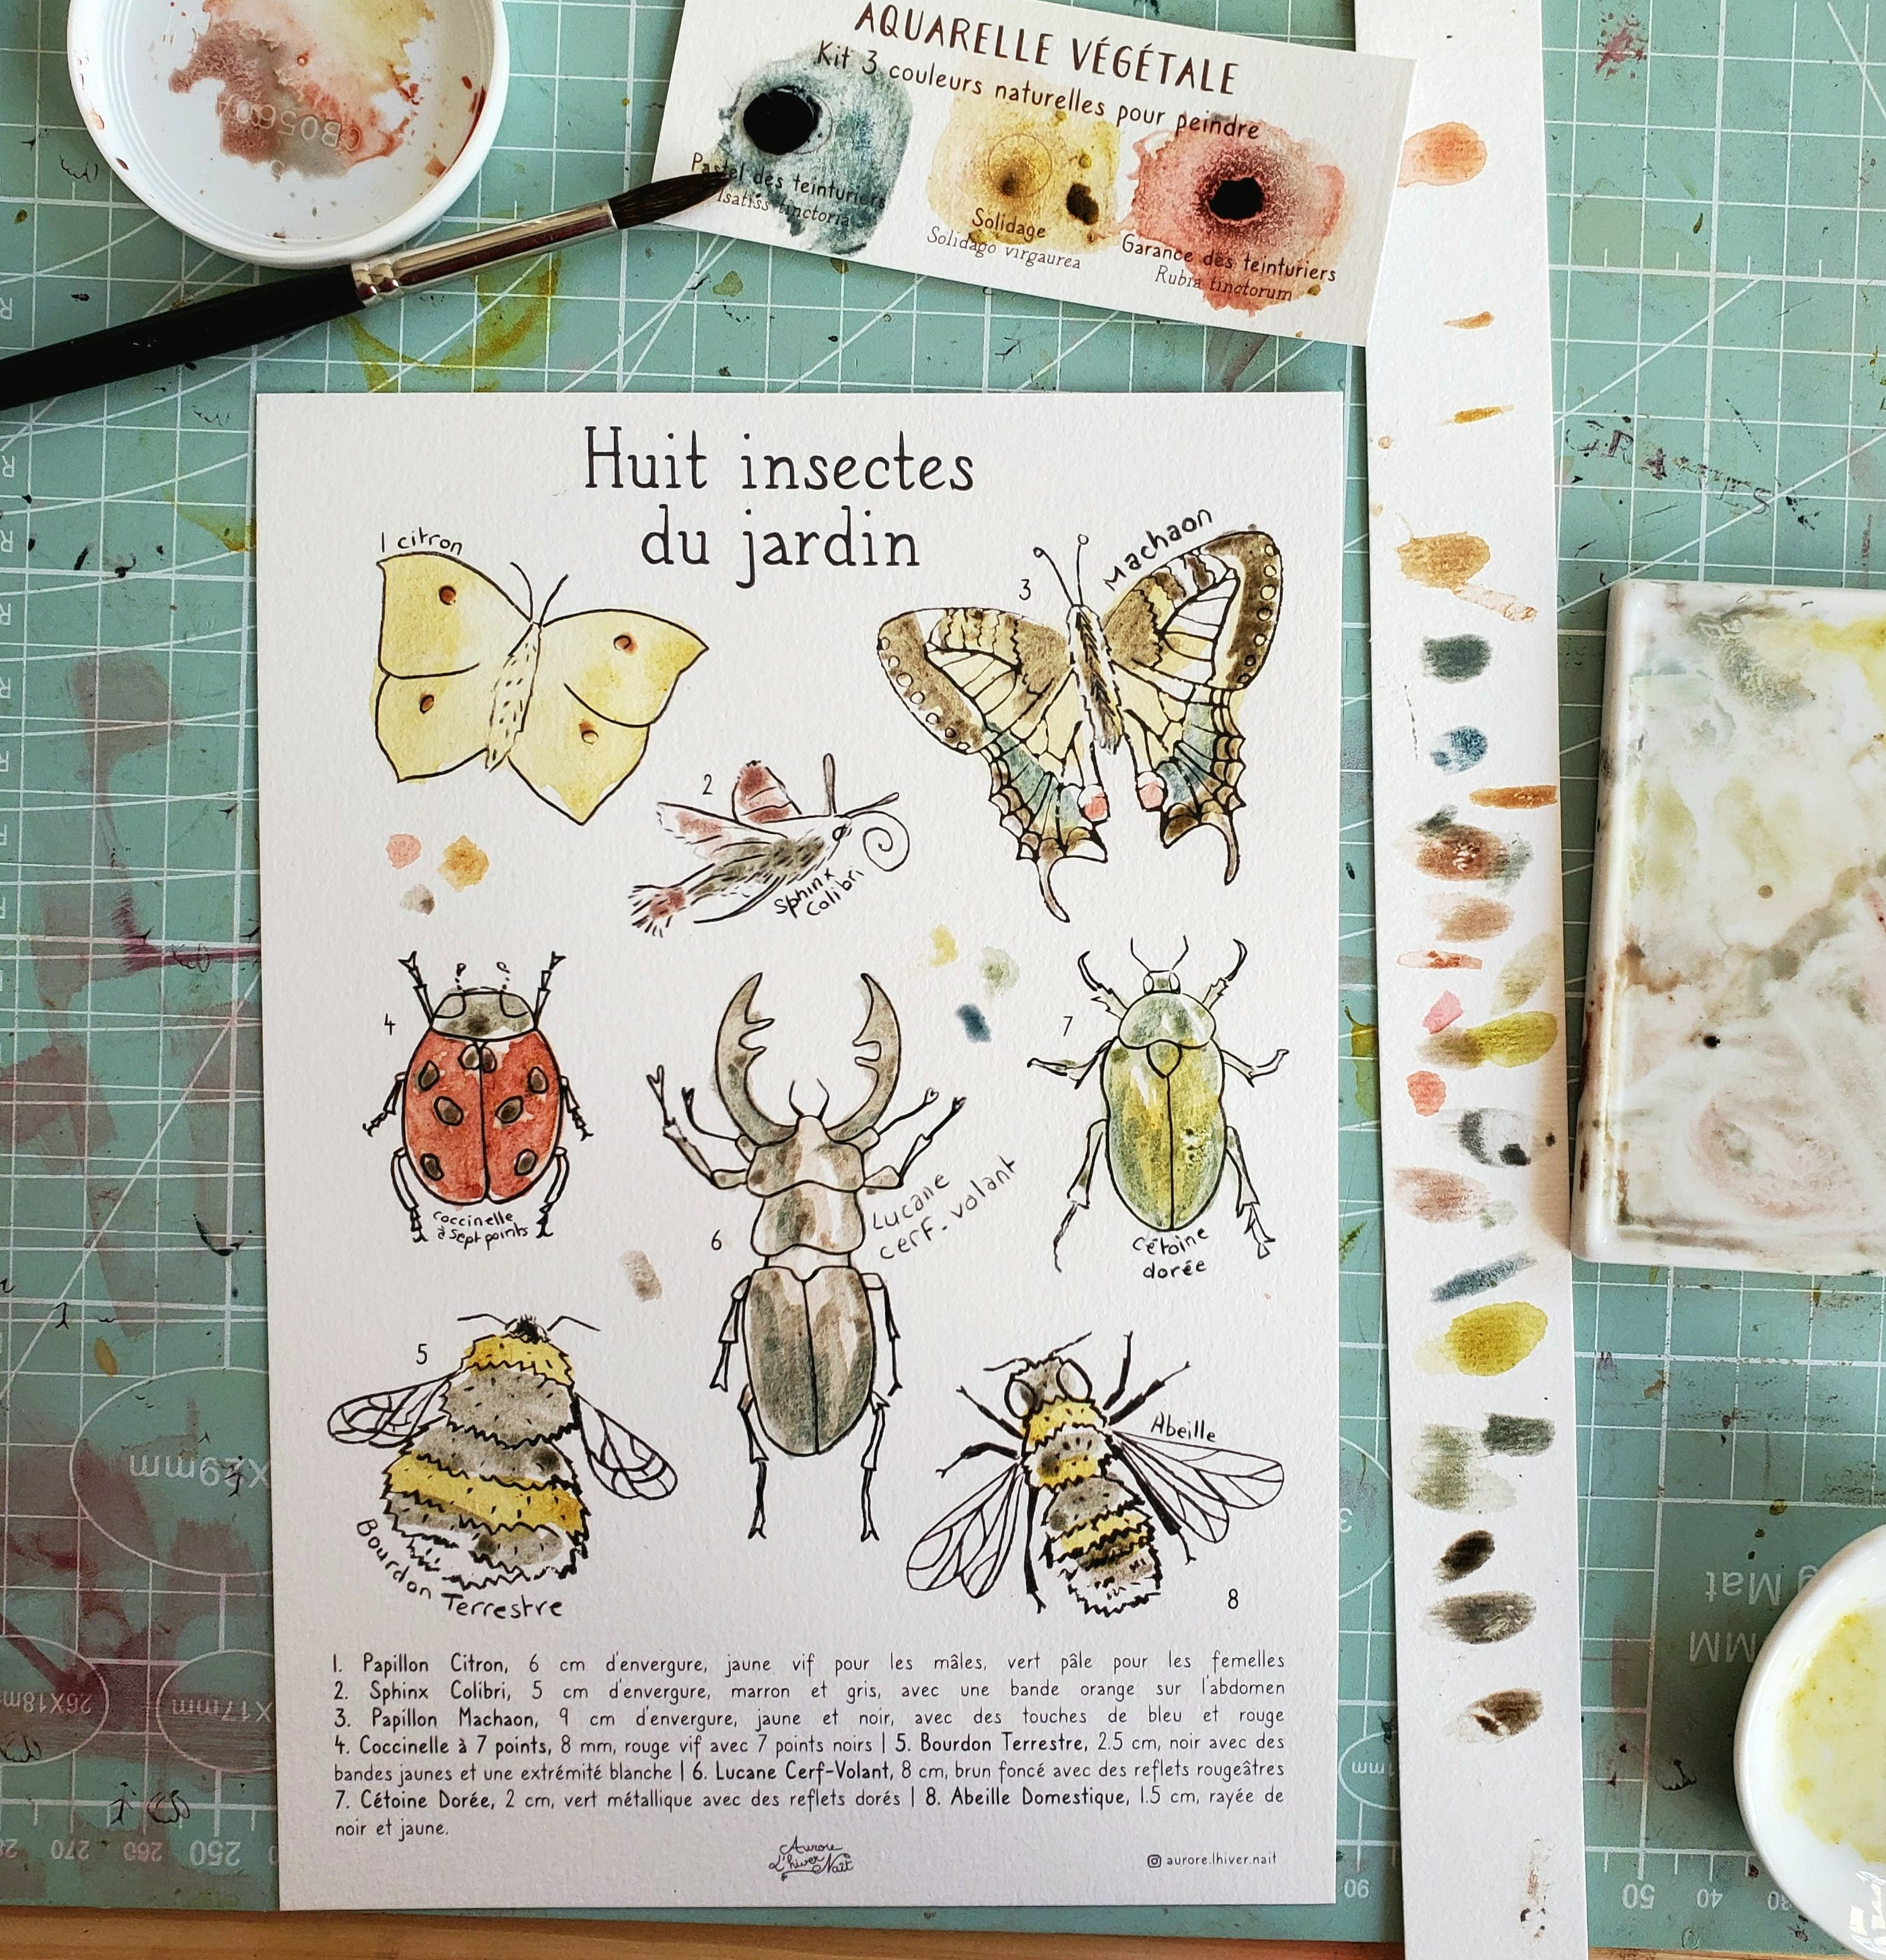 AQUARELLE VÉGÉTALE
Kit 3 couleurs naturelles pour peindre
Pastel des teinturiers
Isatiss tinctoria
Solidage
Solidago virgaurea
Garance des teinturiers
Rubia tinctorum
CB0560
Huit insectes
du jardin
1 citron
3
Machaon
2
Sphinx
Colibri
4
coccinelle
à sept points
7
Cétoine
dorée
6
Lucane
cerf-volant
5
Bourdon Terrestre
Abeille
8
1. Papillon Citron, 6 cm d'envergure, jaune vif pour les mâles, vert pâle pour les femelles
2. Sphinx Colibri, 5 cm d'envergure, marron et gris, avec une bande orange sur l'abdomen
3. Papillon Machaon, 9 cm d'envergure, jaune et noir, avec des touches de bleu et rouge
4. Coccinelle à 7 points, 8 mm, rouge vif avec 7 points noirs | 5. Bourdon Terrestre, 2.5 cm, noir avec des
bandes jaunes et une extrémité blanche | 6. Lucane Cerf-Volant, 8 cm, brun foncé avec des reflets rougeâtres
7. Cétoine Dorée, 2 cm, vert métallique avec des reflets dorés | 8. Abeille Domestique, 1.5 cm, rayée de
noir et jaune.
Aurore
L'hiver Nait
aurore.lhiver.nait
Mat
MM
X29mm
26X18mm
X17mm
270 260 250
90
50 40